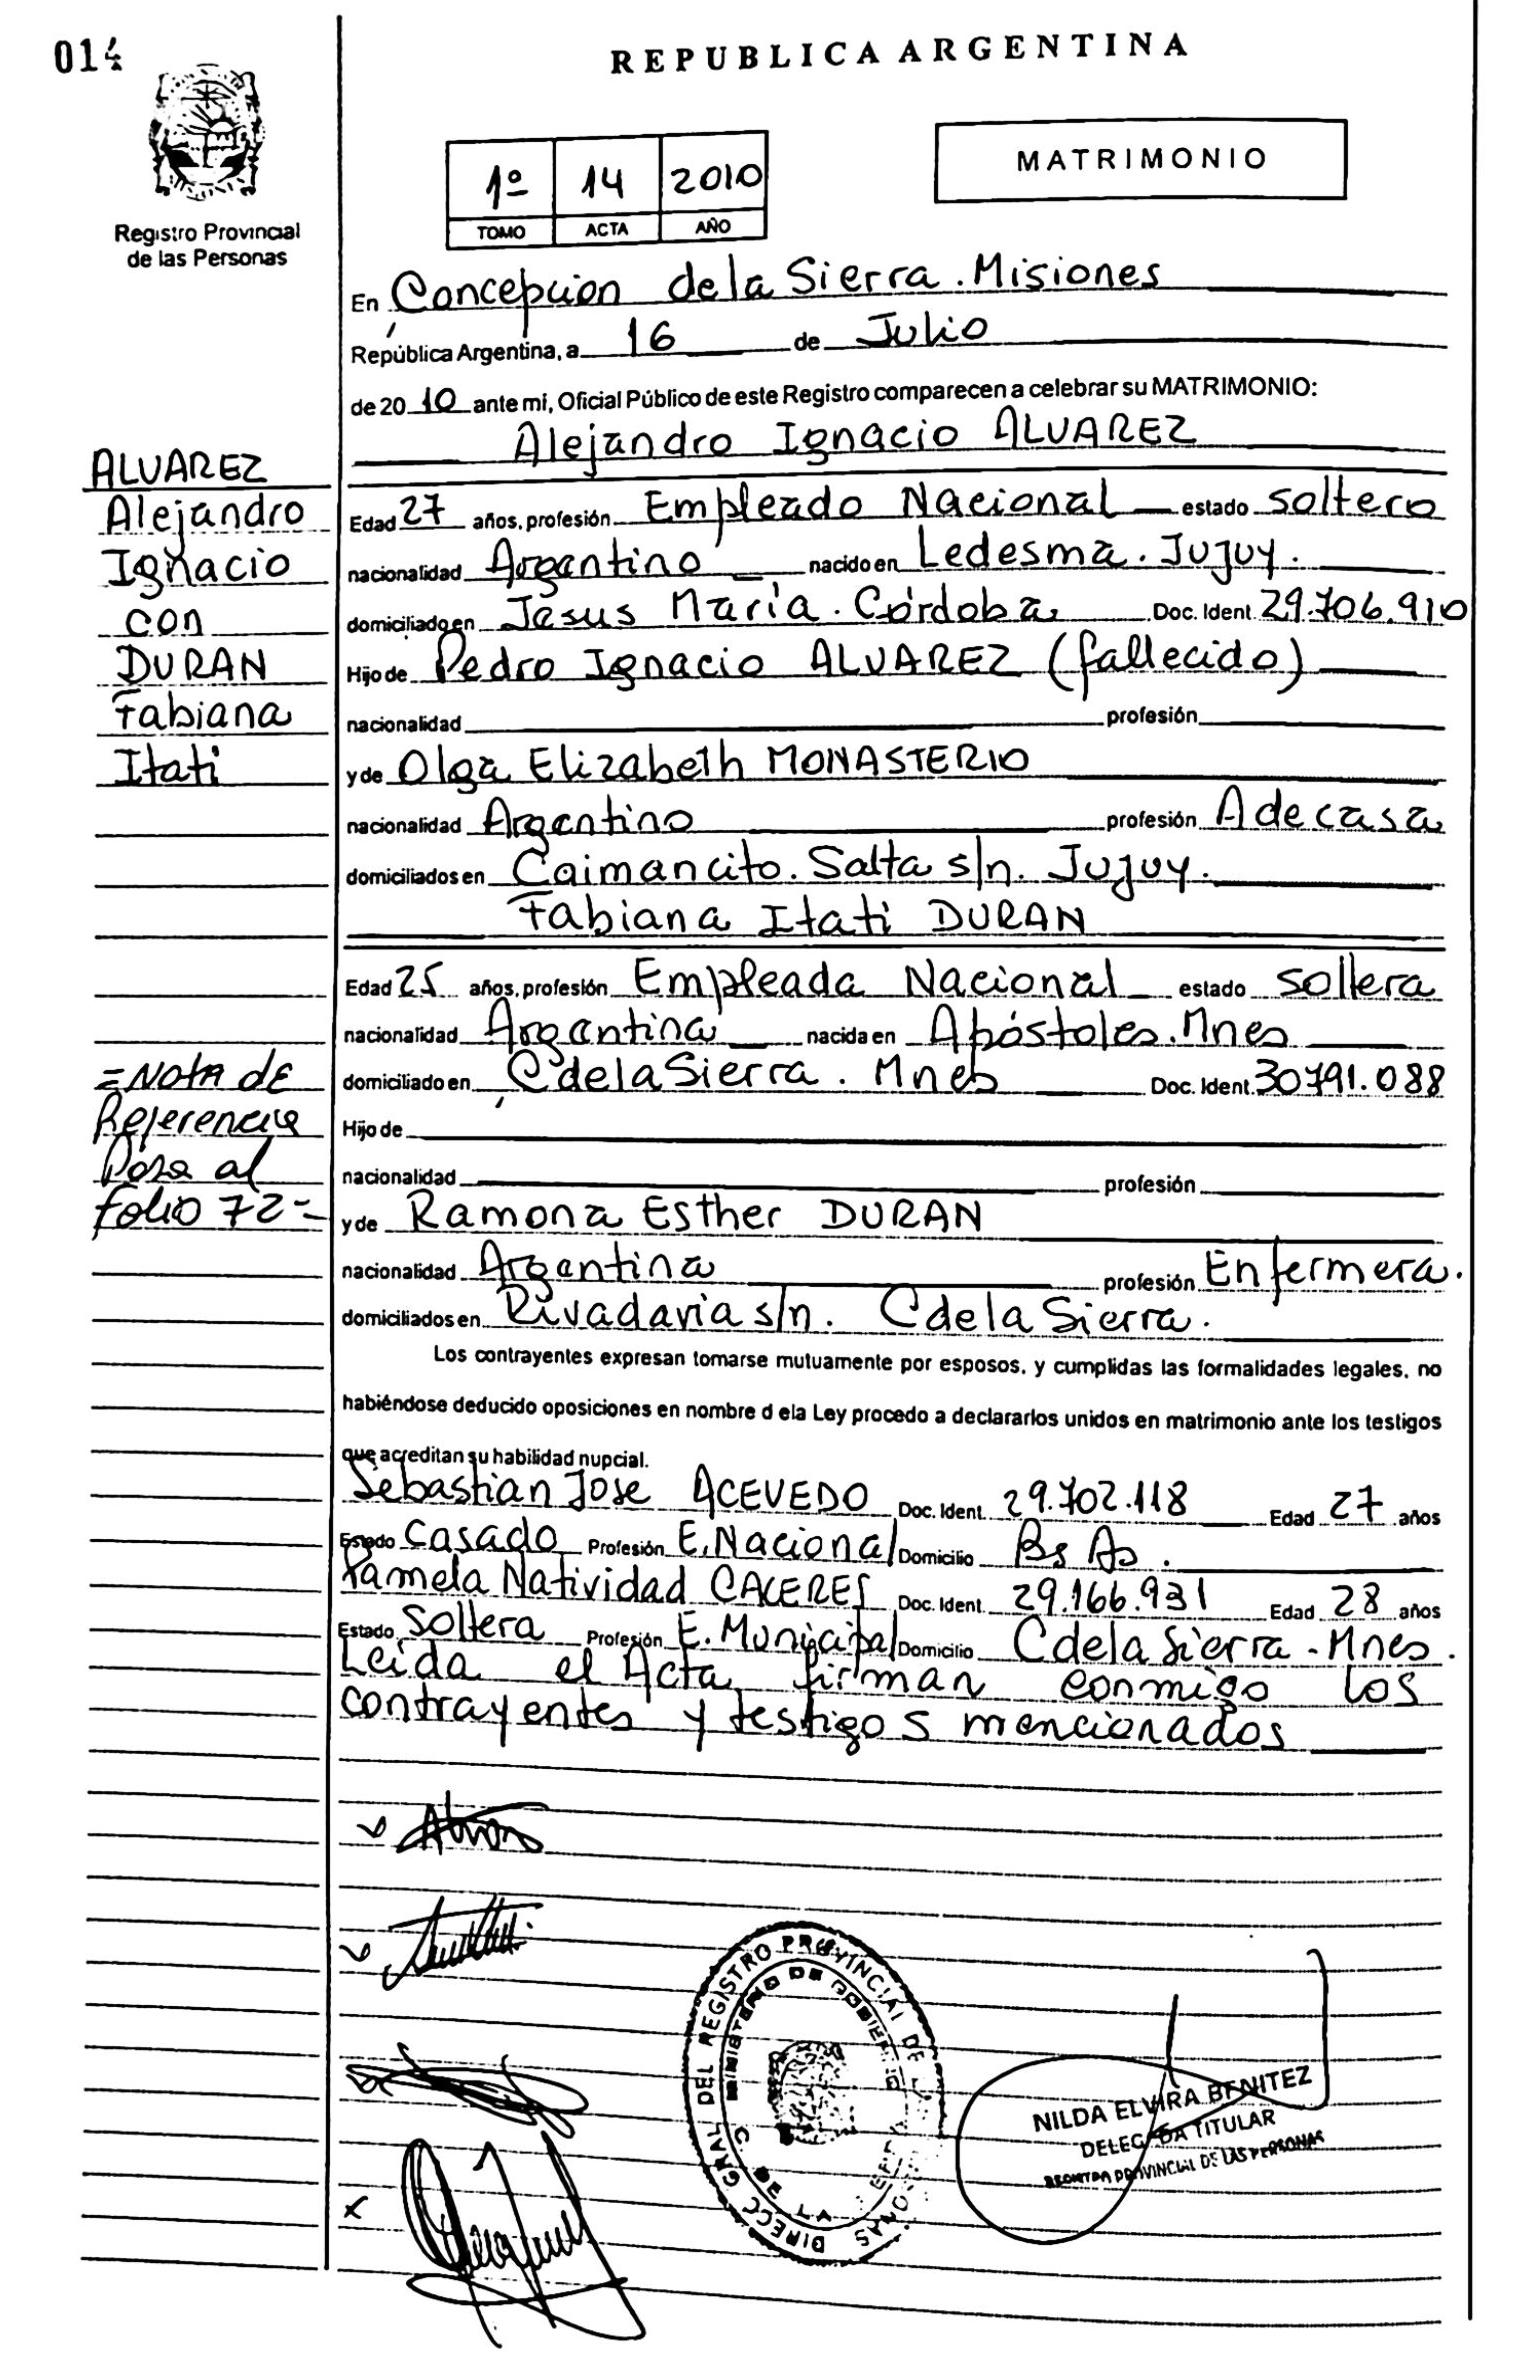 014
REPUBLICA ARGENTINA
Registro Provincial
de las Personas
1º 14 2010
TOMO ACTA AÑO
MATRIMONIO
En Concepcion de la Sierra. Misiones
República Argentina, a 16 de Julio
de 2010 ante mi, Oficial Público de este Registro comparecen a celebrar su MATRIMONIO:
Alejandro Ignacio ALVAREZ
ALVAREZ
Alejandro
Ignacio
con
DURAN
Fabiana
Itati
Edad 27 años, profesión Empleado Nacional estado soltero
nacionalidad Argentino nacido en Ledesma. Jujuy.
domiciliado en Jesus María. Córdoba Doc. Ident. 29.706.910
Hijo de Pedro Ignacio ALVAREZ (fallecido)
nacionalidad profesión
y de Olga Elizabeth MONASTERIO
nacionalidad Argentino profesión A de casa
domiciliados en Caimancito. Salta s/n. Jujuy.
Fabiana Itati DURAN
Edad 25 años, profesión Empleada Nacional estado soltera
nacionalidad Argentina nacida en Apóstoles. Mnes
domiciliado en C de la Sierra. Mnes Doc. Ident. 30791.088
Hijo de
nacionalidad profesión
y de Ramona Esther DURAN
nacionalidad Argentina profesión Enfermera.
domiciliados en Rivadavia s/n. C de la Sierra.
=Nota de
Referencia
Pasa al
folio 72=
Los contrayentes expresan tomarse mutuamente por esposos, y cumplidas las formalidades legales, no
habiéndose deducido oposiciones en nombre d ela Ley procedo a declararlos unidos en matrimonio ante los testigos
que acreditan su habilidad nupcial.
Sebastian Jose ACEVEDO Doc. Ident. 29.702.118 Edad 27 años
Estado Casado Profesión E. Nacional Domicilio Bs As.
Pamela Natividad CACERES Doc. Ident. 29.166.931 Edad 28 años
Estado Soltera Profesión E. Municipal Domicilio C de la Sierra - Mnes.
Leída el Acta firman conmigo los
contrayentes y testigos mencionados
DIRECC GRAL DEL REGISTRO PROVINCIAL DE
MINISTERIO DE GOBIERNO
NILDA ELVIRA BENITEZ
DELEGADA TITULAR
REGISTRO PROVINCIAL DE LAS PERSONAS